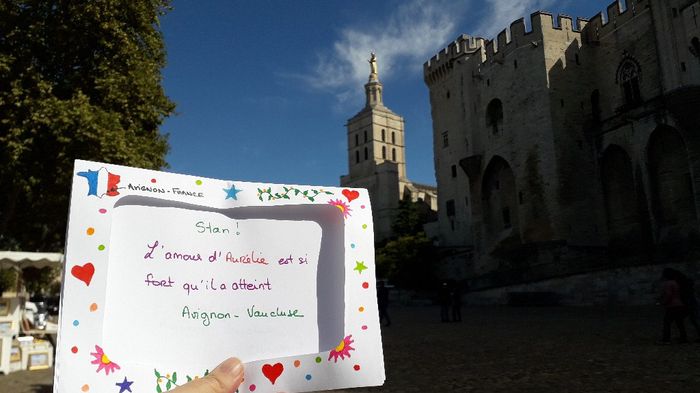 AVIGNON - FRANCE
Stan !
L'amour d'Aurélie est si
fort qu'il a atteint
Avignon - Vaucluse